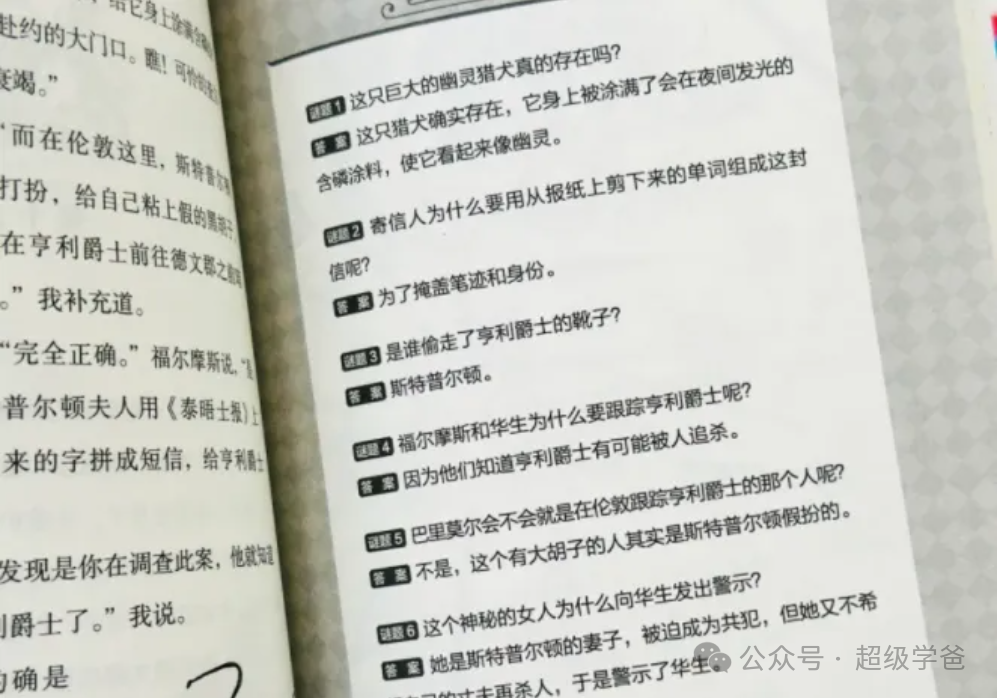 给它身上涂满
赴约的大门口。瞧！可怜的
竭。”
“而在伦敦这里，斯特普尔
打扮，给自己粘上假的黑胡子
在亨利爵士前往德文郡之前
。”我补充道。
“完全正确。”福尔摩斯说，“
普尔顿夫人用《泰晤士报》上
来的字拼成短信，给亨利爵士
发现是你在调查此案，他就知道
爵士了。”我说。
的确是
谜题1 这只巨大的幽灵猎犬真的存在吗？
答案 这只猎犬确实存在，它身上被涂满了会在夜间发光的
含磷涂料，使它看起来像幽灵。
谜题2 寄信人为什么要用从报纸上剪下来的单词组成这封
信呢？
答案 为了掩盖笔迹和身份。
谜题3 是谁偷走了亨利爵士的靴子？
答案 斯特普尔顿。
谜题4 福尔摩斯和华生为什么要跟踪亨利爵士呢？
答案 因为他们知道亨利爵士有可能被人追杀。
谜题5 巴里莫尔会不会就是在伦敦跟踪亨利爵士的那个人呢？
答案 不是，这个有大胡子的人其实是斯特普尔顿假扮的。
谜题6 这个神秘的女人为什么向华生发出警示？
答案 她是斯特普尔顿的妻子，被迫成为共犯，但她又不希
自己的丈夫再杀人，于是警示了华生。
公众号·超级学爸